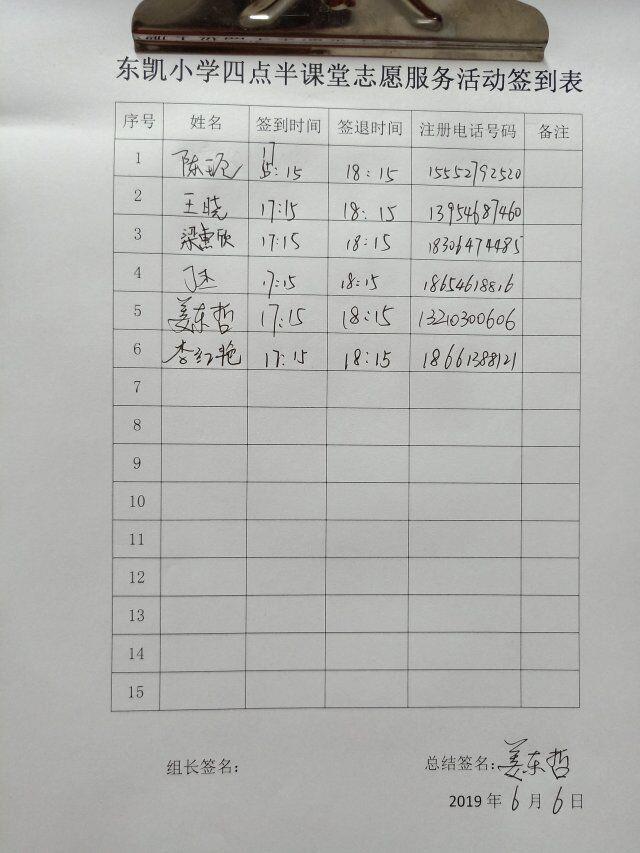 东凯小学四点半课堂志愿服务活动签到表
序号 姓名 签到时间 签退时间 注册电话号码 备注
1 陈 17:15 18:15 15552792520
2 王晓 17:15 18:15 13954687460
3 梁惠欣 17:15 18:15 18306474485
4 丁 17:15 18:15 18654618816
5 姜东哲 17:15 18:15 13210300606
6 李红艳 17:15 18:15 18661388121
7
8
9
10
11
12
13
14
15
组长签名: 总结签名:姜东哲
2019 年 6 月 6 日